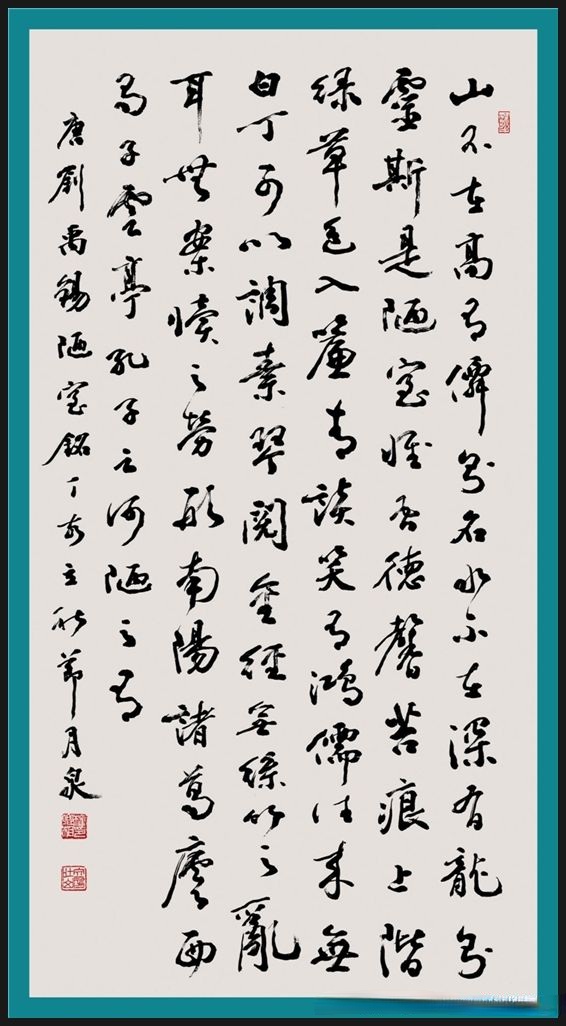 山不在高有僊則名水不在深有龍則
靈斯是陋室惟吾德馨苔痕上階
緑草色入簾青談笑有鴻儒往来無
白丁可以調素琴閲金經無絲竹之亂
耳無案牘之勞形南陽諸葛廬西
蜀子雲亭孔子云何陋之有
唐劉禹錫陋室銘丁亥立秋節月泉